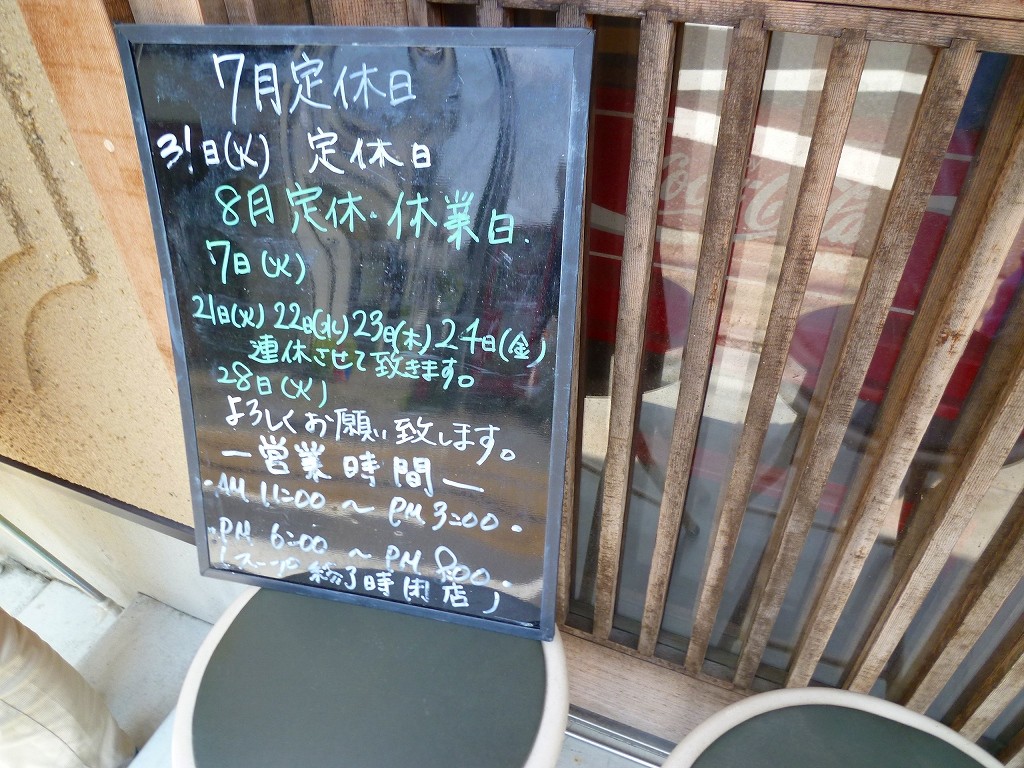 7月定休日
31日(火) 定休日
8月定休・休業日.
7日(火)
21日(火) 22日(水) 23日(木) 24日(金)
連休させて致きます。
28日(火)
よろしくお願い致します。
ー営業時間ー
・AM 11:00 〜 PM 3:00.
・PM 6:00 〜 PM 8:00.
(スープ終了時閉店)
Coca-Cola